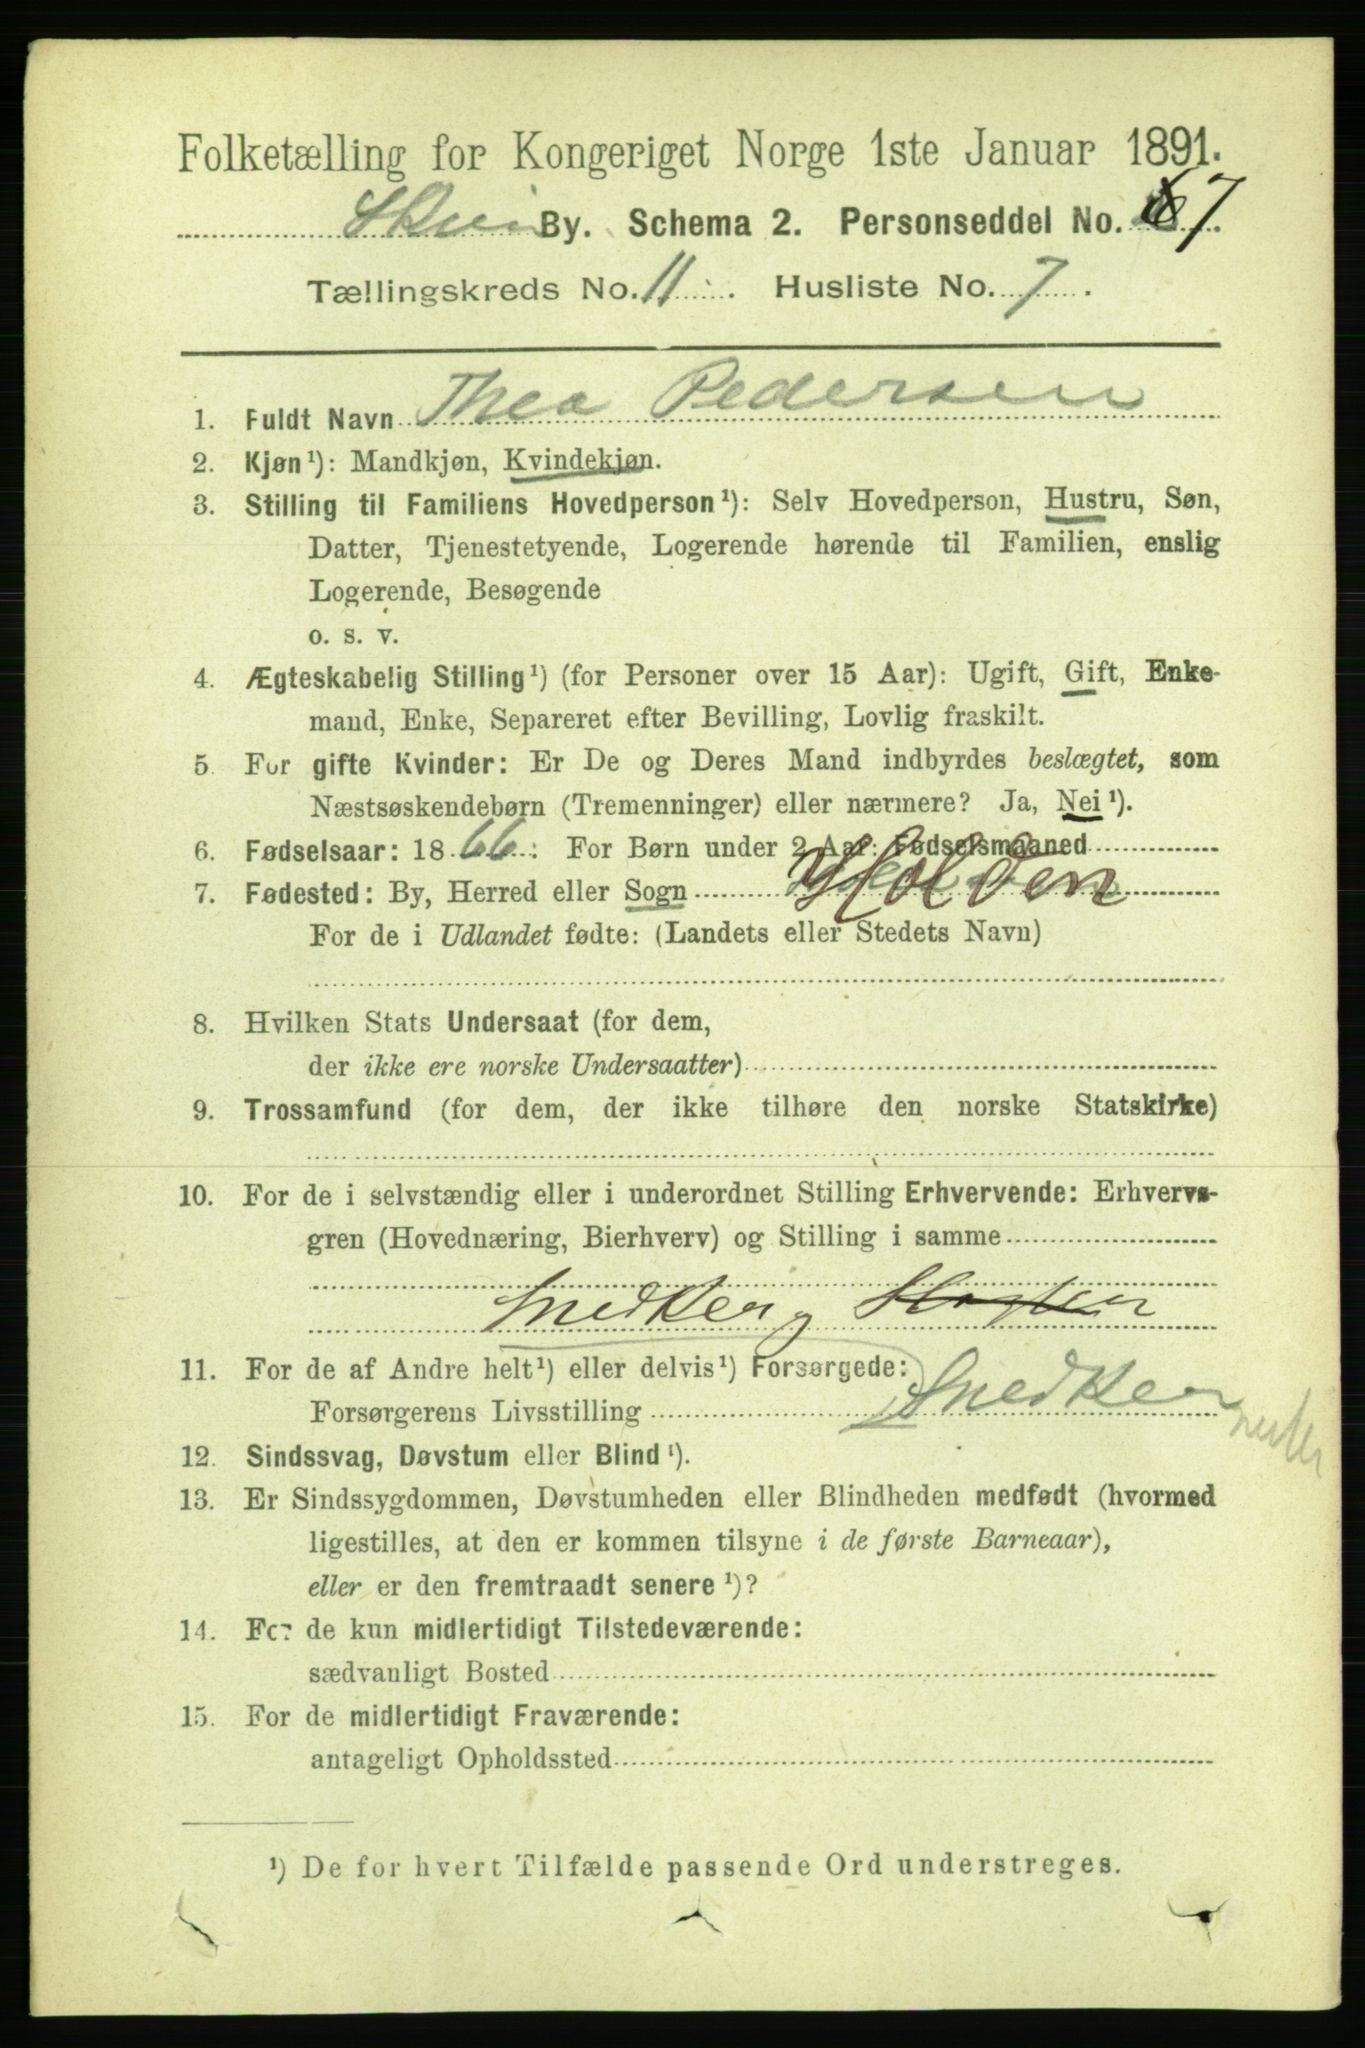 Folketælling for Kongeriget Norge 1ste Januar 1891.
Skien By. Schema 2. Personseddel No. 7.
Tællingskreds No. 11. Husliste No. 7.
1. Fuldt Navn Thea Pedersen
2. Kjøn¹): Mandkjøn, Kvindekjøn.
3. Stilling til Familiens Hovedperson¹): Selv Hovedperson, Hustru, Søn,
Datter, Tjenestetyende, Logerende hørende til Familien, enslig
Logerende, Besøgende
o. s. v.
4. Ægteskabelig Stilling¹) (for Personer over 15 Aar): Ugift, Gift, Enke-
mand, Enke, Separeret efter Bevilling, Lovlig fraskilt.
5. For gifte Kvinder: Er De og Deres Mand indbyrdes beslægtet, som
Næstsøskendebørn (Tremenninger) eller nærmere? Ja, Nei¹).
6. Fødselsaar: 1866: For Børn under 2 Aar: Fødselsmaaned
7. Fødested: By, Herred eller Sogn Holden
For de i Udlandet fødte: (Landets eller Stedets Navn)
8. Hvilken Stats Undersaat (for dem,
der ikke ere norske Undersaatter)
9. Trossamfund (for dem, der ikke tilhøre den norske Statskirke)
10. For de i selvstændig eller i underordnet Stilling Erhvervende: Erhvervs-
gren (Hovednæring, Bierhverv) og Stilling i samme
Snedker
11. For de af Andre helt¹) eller delvis¹) Forsørgede:
Forsørgerens Livsstilling Snedker
12. Sindssvag, Døvstum eller Blind¹).
13. Er Sindssygdommen, Døvstumheden eller Blindheden medfødt (hvormed
ligestilles, at den er kommen tilsyne i de første Barneaar),
eller er den fremtraadt senere¹)?
14. For de kun midlertidigt Tilstedeværende:
sædvanligt Bosted
15. For de midlertidigt Fraværende:
antageligt Opholdssted
¹) De for hvert Tilfælde passende Ord understreges.